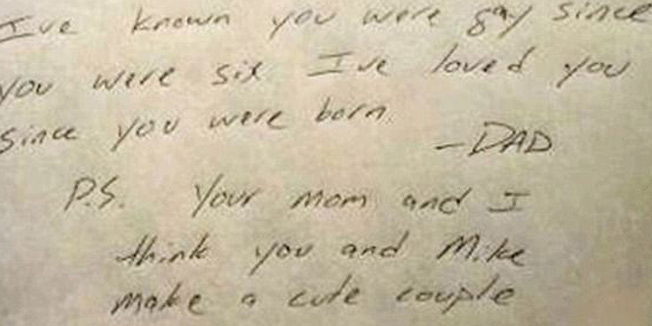 I've known you were gay since
you were six I've loved you
since you were born
-DAD
P.S. Your mom and I
think you and Mike
make a cute couple